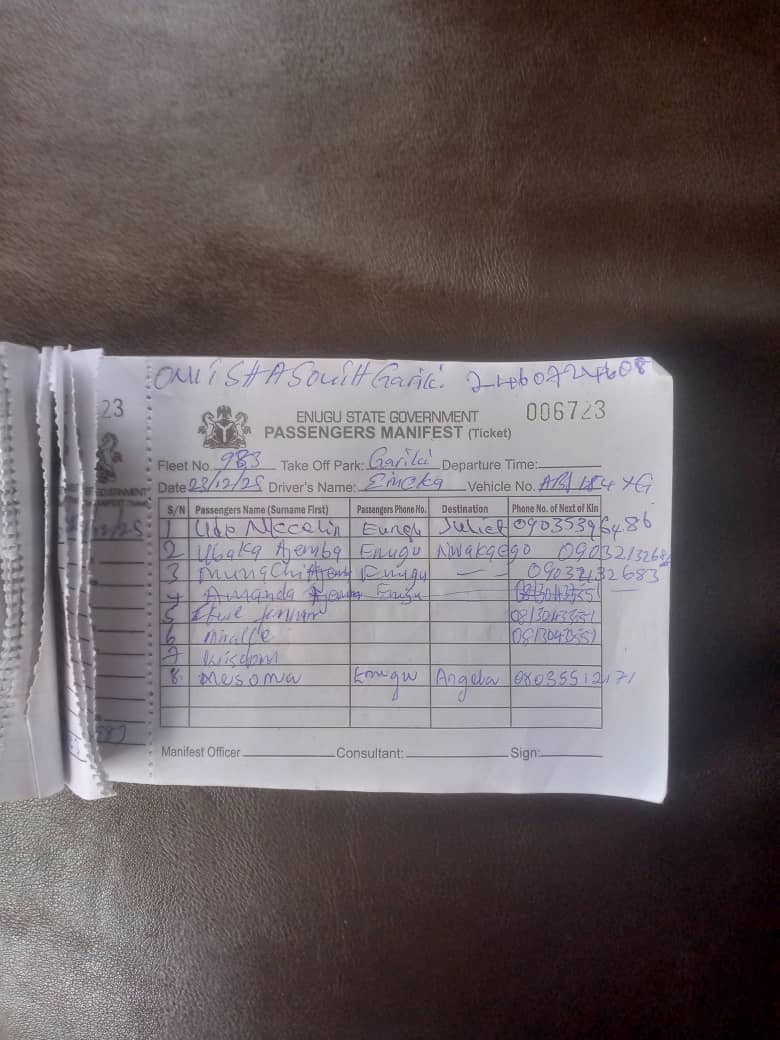 ONITSHA South Garili 2460724608
23
ENUGU STATE GOVERNMENT
006723
PASSENGERS MANIFEST (Ticket)
Fleet No. 983 Take Off Park: Garili Departure Time:
Date 23/12/25 Driver's Name: Emeka Vehicle No.
S/N Passengers Name (Surname First) Passengers Phone No. Destination Phone No. of Next of Kin
1 Ude Enugu Juliet 09035396486
2 Ubaka Ajemba Enugu Nwakaego
3 Enugu 09032132683
4 Amanda Enugu
5 0813043551
6 Miracle 0813043551
7 Wisdom
8. Mesoma Enugu Angela 08035512171
Manifest Officer Consultant: Sign: